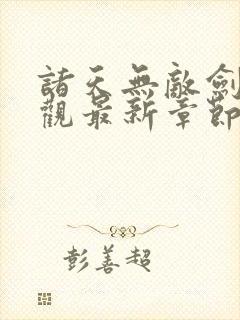 諸天無敵劍
觀最新章節
彭善超